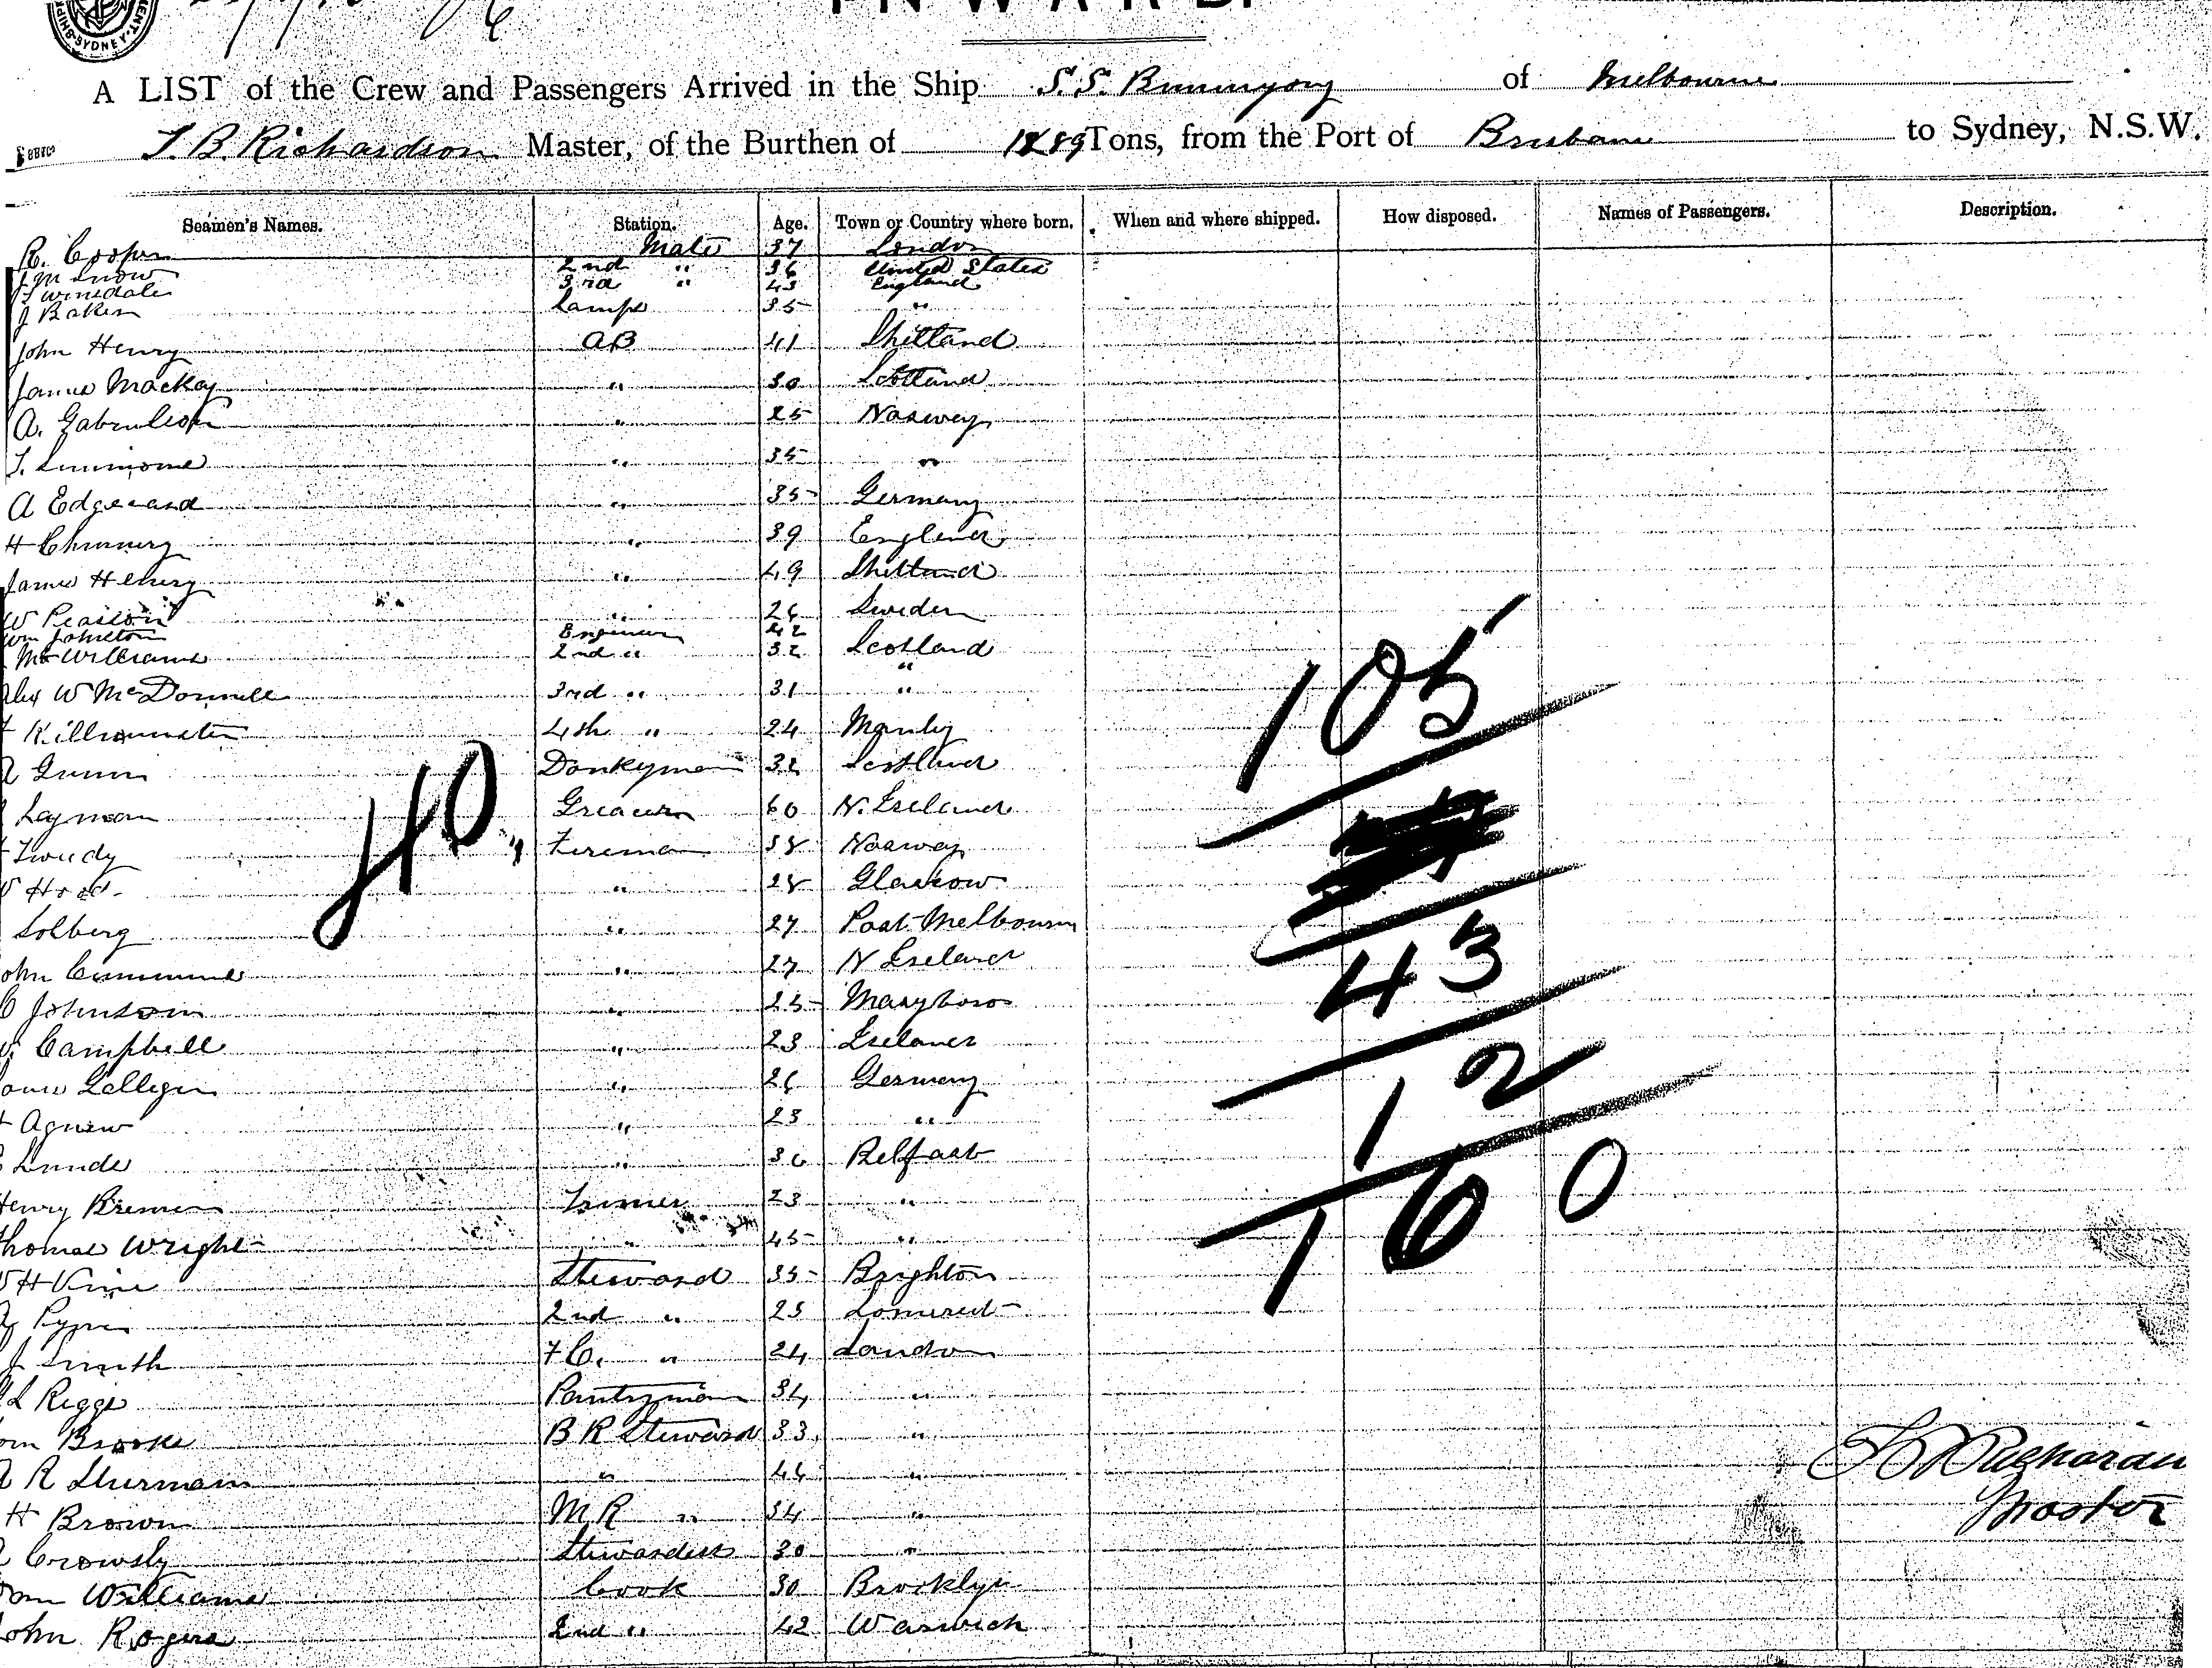 INWARD.
SYDNEY
A LIST of the Crew and Passengers Arrived in the Ship S.S. Buninyong of Melbourne
T. B. Richardson Master, of the Burthen of Tons, from the Port of Brisbane to Sydney, N.S.W.
Seamen's Names. Station. Age. Town or Country where born. When and where shipped. How disposed. Names of Passengers. Description.
R. Cooper Mate 37 London
J M Snow 2nd " 36 United States
Twinsdale 3rd " 43 England
J Baker Lamps 35 "
John Henry AB 41 Shetland
James Mackay " 30 Scotland
A. Gabrielson " 25 Norway
T. Simmons " 35 "
A Edgecard " 35 Germany
H Chinnery " 39 England
James Henry " 49 Shetland
W Pearson " 26 Sweden
Wm Johnston Engineer 42
McWilliams 2nd " 32 Scotland
"
Alex W McDonnell 3rd " 31 "
Killminster 4th " 24 Manly
Gunn Donkyman 32 Scotland
Layman Greaser 60 N. Ireland
Tweedy Fireman 38 Norway
W Hood " 28 Glasgow
Solberg " 27 Port Melbourne
John Cummins " 27 N Ireland
C Johnson " 25 Maryboro
Campbell " 23 Ireland
" 26 Germany
Agnew " 23 "
Lunde " 36 Belfast
Henry Bremer Trimer 23 "
Thomas Wright " 45 "
W H Vine Steward 35 Brighton
Pyne 2nd " 25 Somerset
J Smith F.C. " 24 London
L Riggs Pantryman 34 "
Tom Brooke B R Steward 33 "
A R Sturman " 44 "
H Brown M R " 34 "
Crowsly Stewardess 30 "
Tom Williams Cook 30 Brooklyn
John Rogers 2nd " 42 Warwick
40
105
43
12
160
Richardson
Master